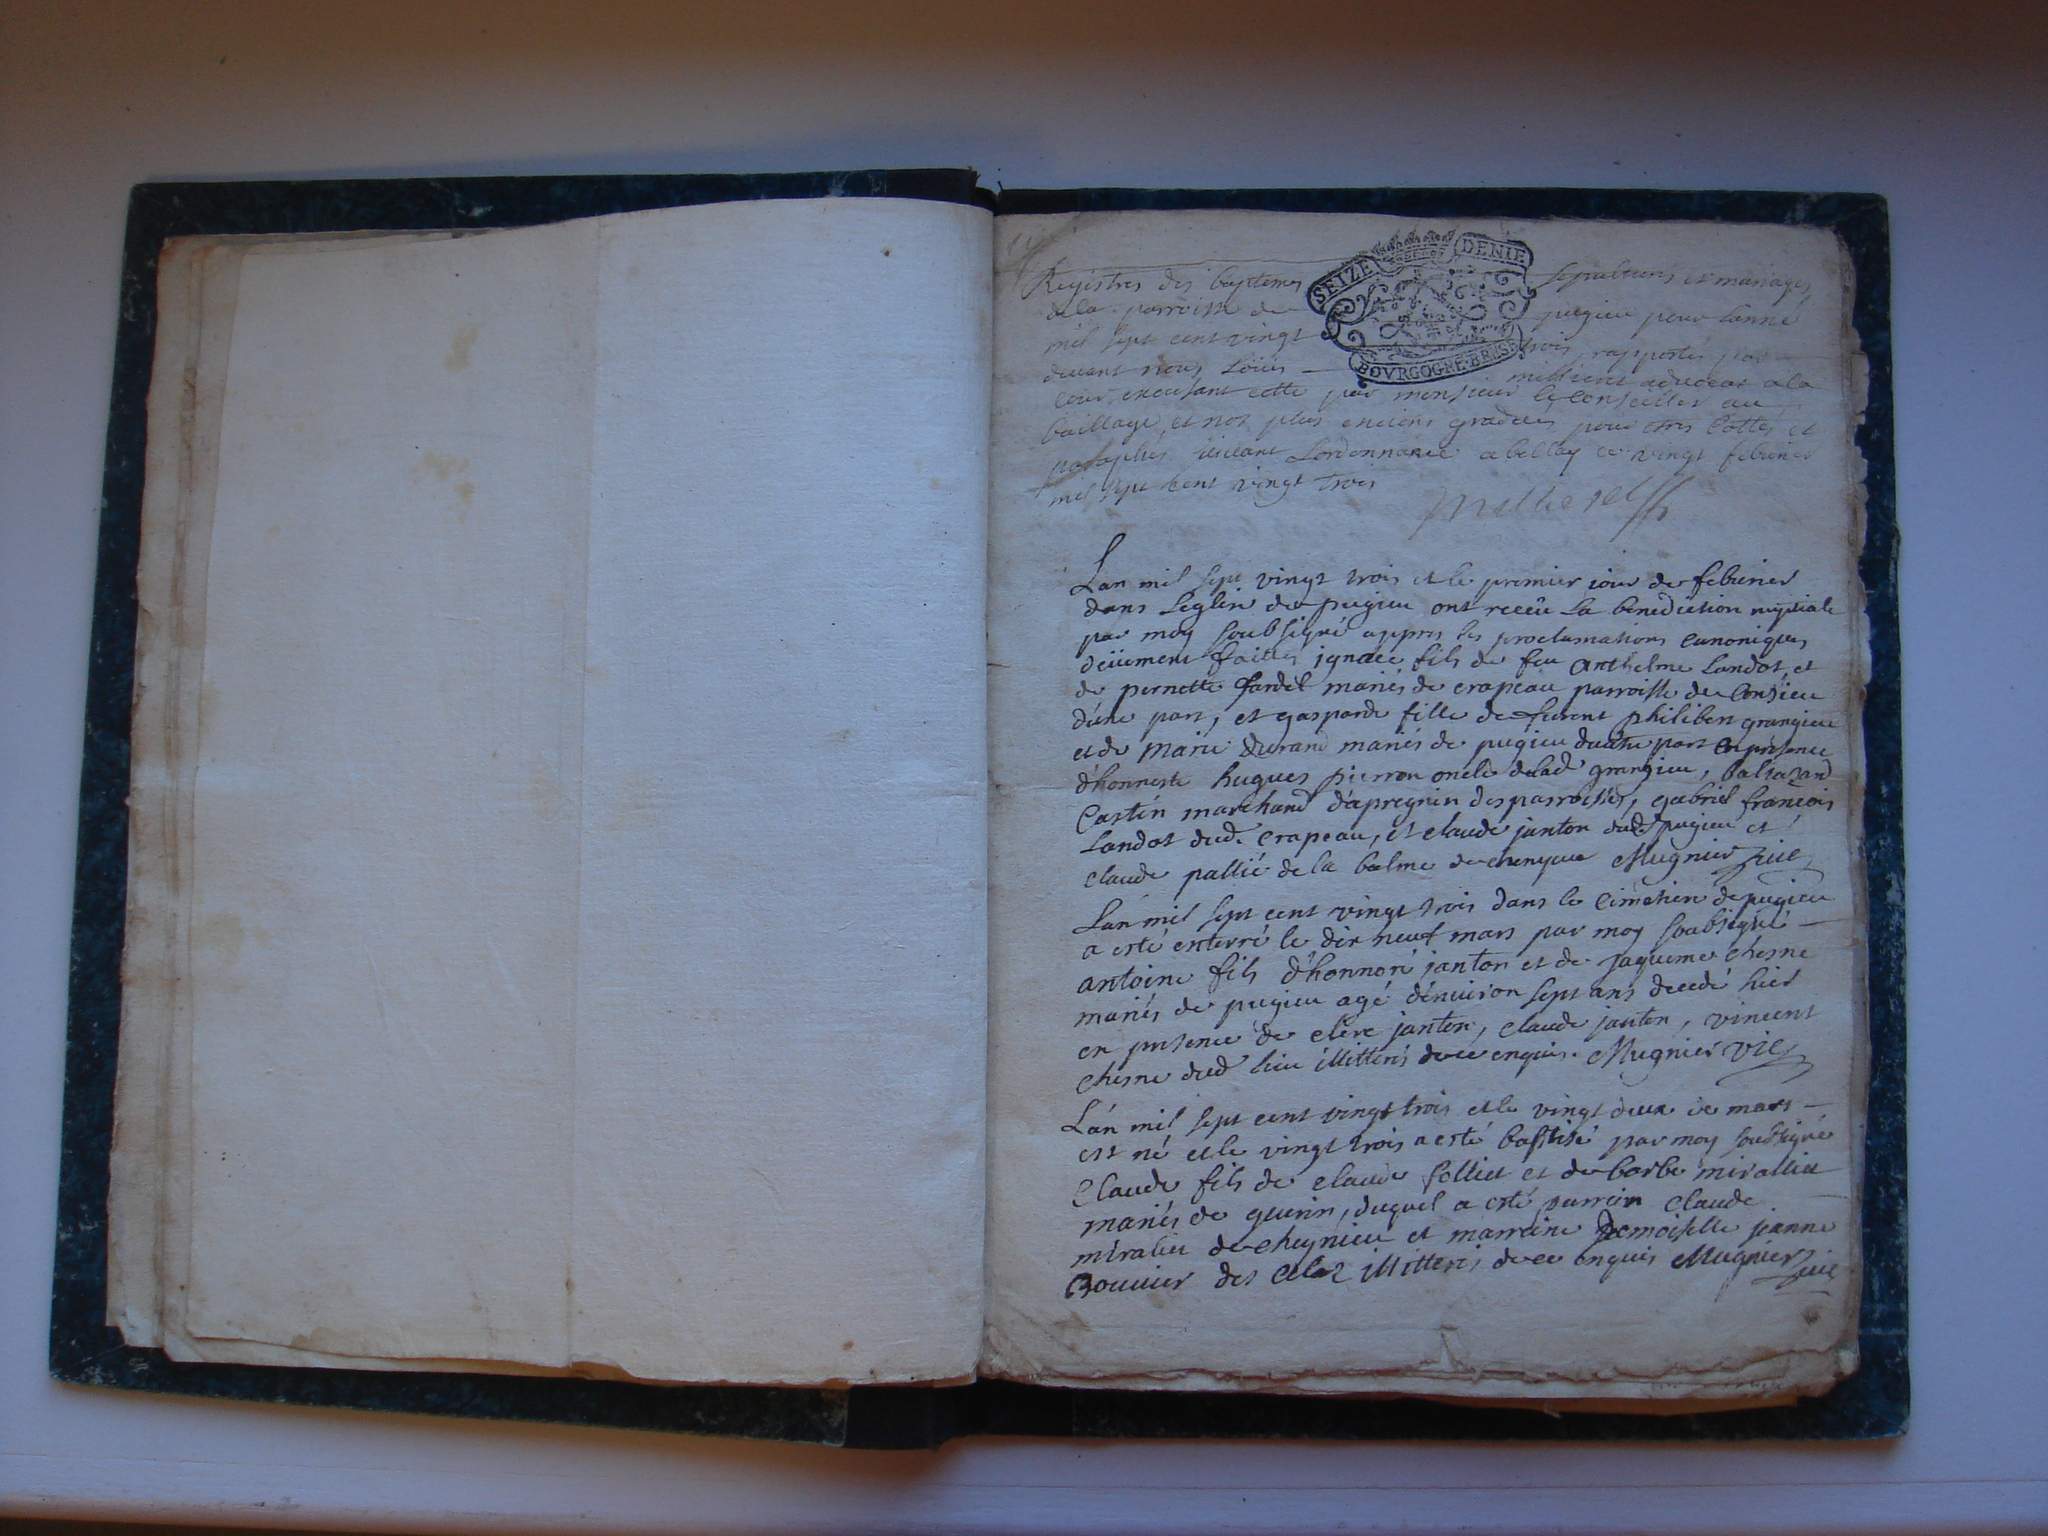 SEIZE DENIE
BOVRGOGNE·BRESSE
Registres des baptemes sepultures et mariages
de la parroisse de pugieu pour lanné
mil sept cent vingt trois rapportés par
devant nous Loüis millieret advocat a la
cour, exersant cette par monsieur le conseiller au
baillage, et nos plus anciens gradues pour estres Cottés et
paraphés suivant Lordonnance a bellay ce vingt febvrier
mil sept cent vingt trois
Millieret
Lan mil sept vingt trois et le premier iour de febvrier
dans Leglise de pugieu ont receû La benediction nuptiale
par moy soubsigné appres les proclamations canoniques
deüement faittes ignace fils de feu anthelme Landot, et
de pernette fardel mariés de crapeau parroisse de Consieu
d'une part, et gasparde fille de furent philibert grangieu
et de marie durand mariés de pugieu dautre part en presence
d'honneste hugues pierron oncle delad grangieu, baltazard
Castin marchand d'apregnin des parroisses, gabriel françois
Landot dud. crapeau, et claude janton dud pugieu et
claude pallié de la balme de Mugnier vic
Lan mil sept cent vingt trois dans le cimetiere de pugieu
a esté enterré le dix neuf mars par moy soubsigné
antoine fils d'honnoré janton et de jaqueme chesne
mariés de pugieu agé d'environ sept ans decedé hier
en presence de janton, claude janton, vincent
chesne dud lieu illitterés de ce enquis. Mugnier vic
L'an mil sept cent vingt trois et le vingt deux de mars
est né et le vingt trois a esté baptisé par moy soubsigné
Claude fils de claude folliet et de barbe miralliet
mariés de guerin, duquel a esté parrein claude
miraliet de cheynieu et marreine Demoiselle jeanne
Bouvier des illitterés de ce enquis Mugnier vic